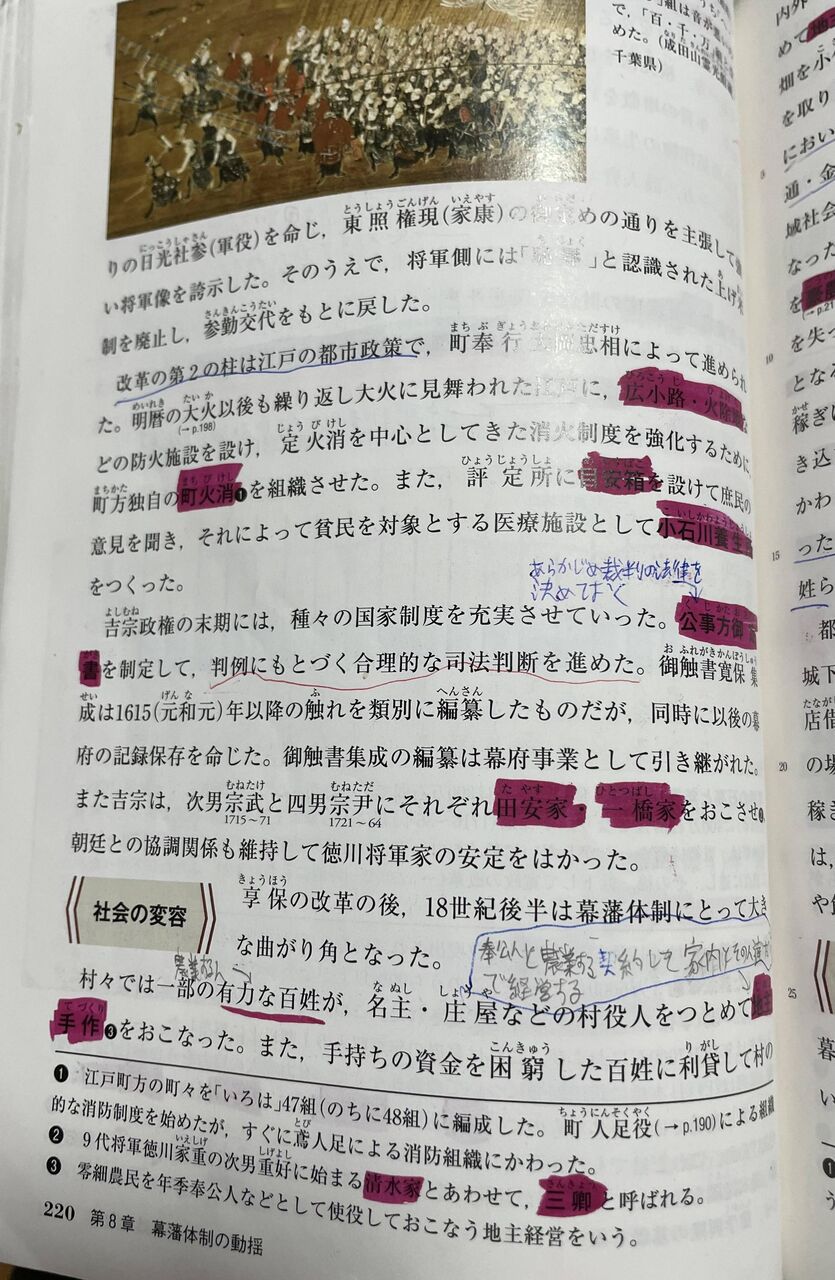 」組は音が
で、「百・千・万
めた。(成田山霊光
千葉県)
りの日光社参(軍役)を命じ，東照権現(家康)の めの通りを主張して
い将軍像を誇示した。そのうえで，将軍側には「 」と認識された上げ米
制を廃止し，参勤交代をもとに戻した。
改革の第2の柱は江戸の都市政策で，町奉行 忠相によって進められ
た。明暦の大火以後も繰り返し大火に見舞われた に，広小路・火除
(→p.198)
どの防火施設を設け，定火消を中心としてきた消火制度を強化するために
町方独自の町火消❶を組織させた。また，評定所に目安箱を設けて庶民の
意見を聞き，それによって貧民を対象とする医療施設として小石川養生
をつくった。
あらかじめ裁判の法律を
決めておく
吉宗政権の末期には，種々の国家制度を充実させていった。公事方御
書を制定して，判例にもとづく合理的な司法判断を進めた。御触書寛保集
成は1615(元和元)年以降の触れを類別に編纂したものだが，同時に以後の幕
府の記録保存を命じた。御触書集成の編纂は幕府事業として引き継がれた。
また吉宗は，次男宗武と四男宗尹にそれぞれ田安家・一橋家をおこさせ❷
1715～71 1721～64
朝廷との協調関係も維持して徳川将軍家の安定をはかった。
社会の変容
享保の改革の後，18世紀後半は幕藩体制にとって大き
な曲がり角となった。
奉公人と農業する契約して家内と
で経営する
村々では一部の有力な百姓が，名主・庄屋などの村役人をつとめて地主
手作❸をおこなった。また，手持ちの資金を困窮した百姓に利貸して村の
❶ 江戸町方の町々を「いろは」47組(のちに48組)に編成した。町人足役(→p.190)による組織
的な消防制度を始めたが，すぐに鳶人足による消防組織にかわった。
❷ 9代将軍徳川家重の次男重好に始まる清水家とあわせて，三卿と呼ばれる。
❸ 零細農民を年季奉公人などとして使役しておこなう地主経営をいう。
220 第8章 幕藩体制の動揺
内外
めて
畑を小
を取り
におい
通・金
城社会
なった
を
を失っ
となる
稼ぎ
き込
かわ
った
姓ら
都
城下
店借
の場
稼ぎ
は，
や
5
10
15
20
25